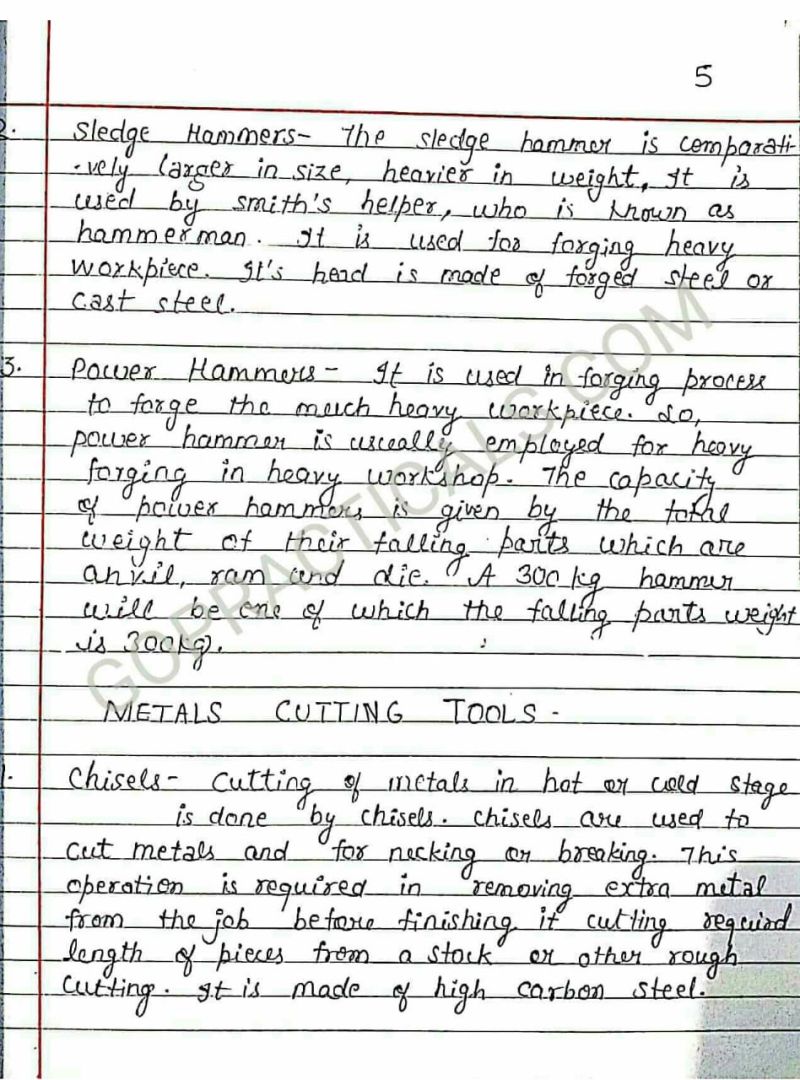 5
2. Sledge Hammers- The sledge hammer is comparati-
-vely larger in size, heavier in weight, It is
used by smith's helper, who is known as
hammerman. It is used for forging heavy
workpiece. It's head is made of forged steel or
cast steel.
3. Power Hammers- It is used in forging process
to forge the much heavy workpiece. So,
power hammer is usually employed for heavy
forging in heavy workshop. The capacity
of power hammers is given by the total
weight of their falling parts which are
anvil, ram and die. A 300 kg hammer
will be one of which the falling parts weight
is 300kg.
METALS CUTTING TOOLS -
1. Chisels- Cutting of metals in hot or cold stage
is done by chisels. Chisels are used to
cut metals and for necking or breaking. This
operation is required in removing extra metal
from the job before finishing if cutting required
length of pieces from a stock or other rough
cutting. It is made of high carbon steel.
GOPRACTICALS.COM